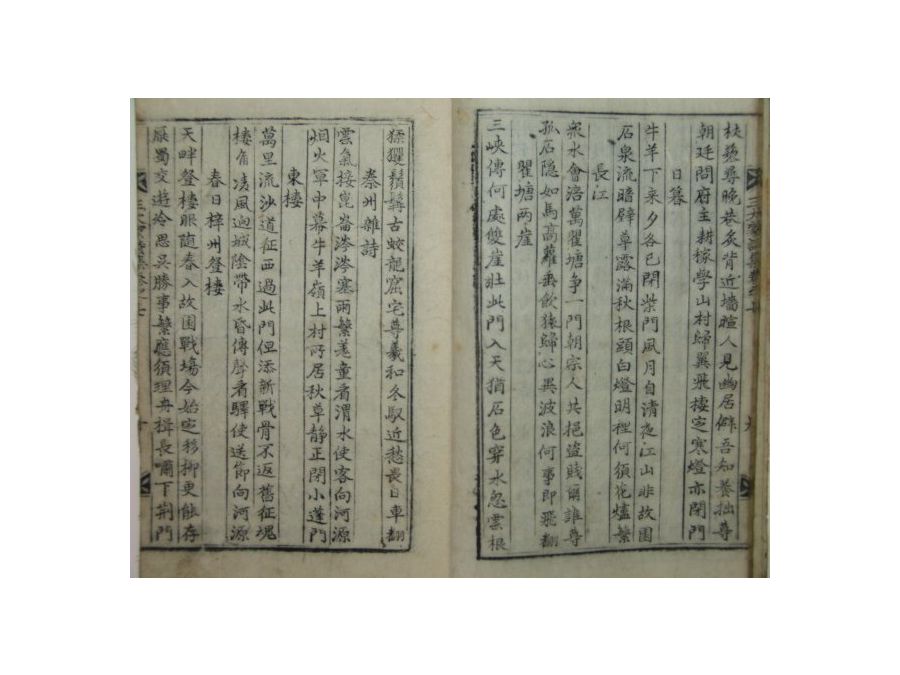 杖藜尋晚巷炙背近墻暄人見幽居僻吾知養拙尊
朝廷問府主耕稼學山村歸翼飛棲定寒燈亦閉門
日暮
牛羊下来夕各已閉柴門風月自清夜江山非故園
石泉流暗壁草露滿秋根頭白燈明裡何須花燼繁
長江
衆水會涪萬瞿塘爭一門朝宗人共挹盜賊爾誰尊
孤石隐如馬高蘿垂飲猿歸心異波浪何事即飛翻
瞿塘两崖
三峽傳何處雙崖壯此門入天猶石色穿水忽雲根
猱玃鬚髯古蛟龍窟宅尊羲和冬馭近愁畏日車翻
秦州雜詩
雲氣接崑崙涔涔塞雨繁羌童看渭水使客向河源
烟火軍中幕牛羊嶺上村所居秋草靜正閉小蓬門
東樓
萬里流沙道征西過此門但添新戰骨不返舊征魂
樓角凌風迥城陰帶水昏傳聲看驛使送節向河源
春日梓州登樓
天畔登樓眼随春入故園戰場今始定移柳更能存
厭蜀交遊冷思吳勝事繁應須理舟楫長嘯下荊門